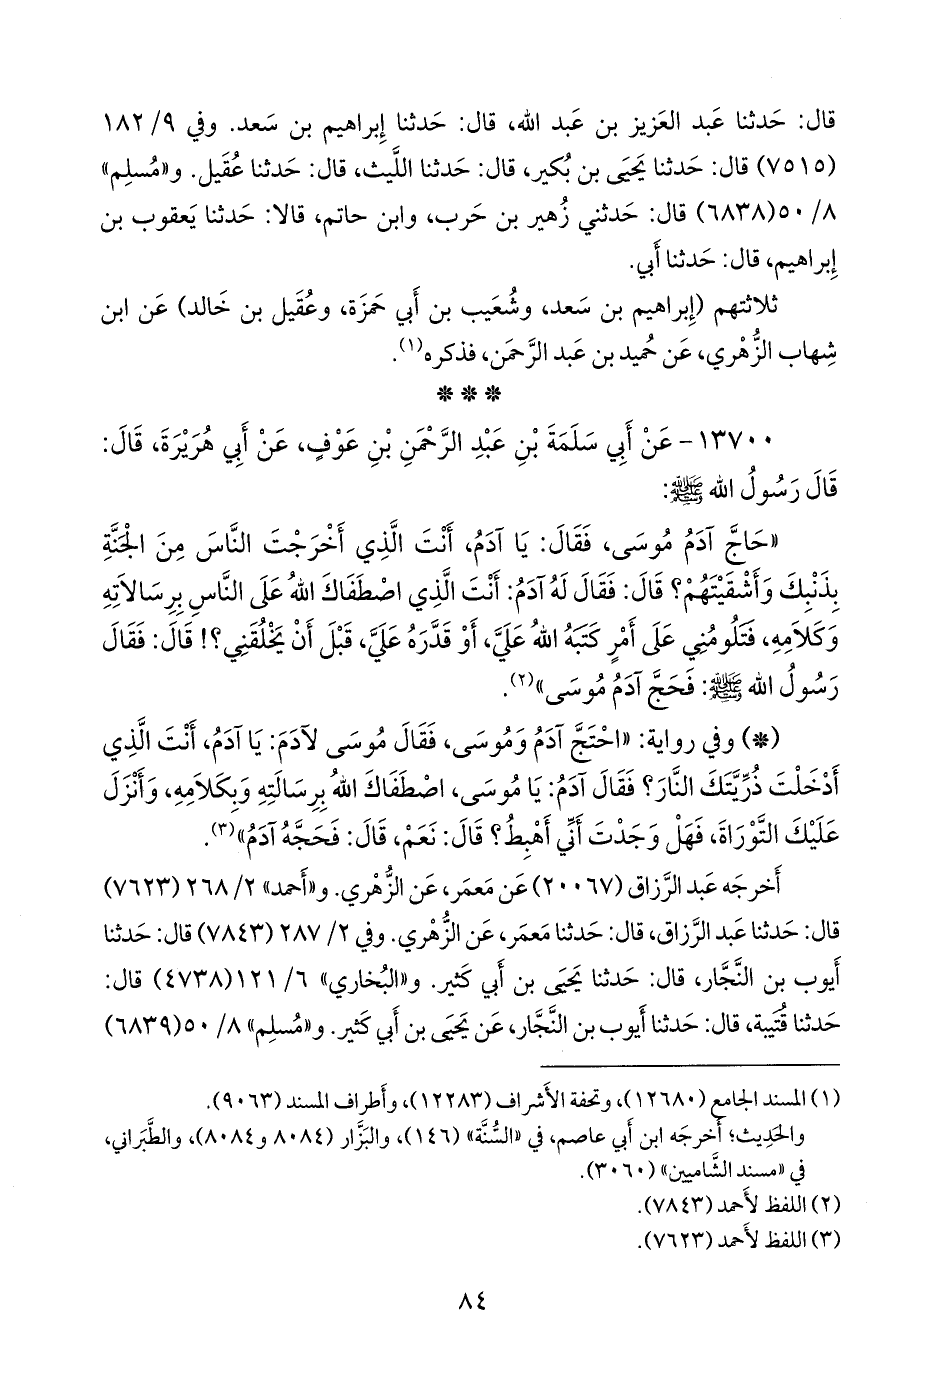 قال: حَدثنا عَبد العَزيز بن عَبد الله، قال: حَدثنا إِبراهيم بن سَعد. وفي ٩/ ١٨٢
(٧٥١٥) قال: حَدثنا يَحيَى بن بُكير، قال: حَدثنا اللَّيث، قال: حَدثنا عُقَيل. و«مُسلِم»
٨/ ٥٠(٦٨٣٨) قال: حَدثني زُهير بن حَرب، وابن حاتم، قالا: حَدثنا يَعقوب بن
إِبراهيم، قال: حَدثنا أَبي.
ثلاثتهم (إِبراهيم بن سَعد، وشُعَيب بن أَبي حَمزَة، وعُقَيل بن خَالد) عَن ابن
شِهاب الزُّهْري، عَن حُميد بن عَبد الرَّحمَن، فذكره(١).
* * *
١٣٧٠٠- عَنْ أَبِي سَلَمَةَ بْنِ عَبْدِ الرَّحْمَنِ بْنِ عَوْفٍ، عَنْ أَبِي هُرَيْرَةَ، قَالَ:
قَالَ رَسُولُ الله ﷺ:
«حَاجَّ آدَمُ مُوسَى، فَقَالَ: يَا آدَمُ، أَنْتَ الَّذِي أَخْرَجْتَ النَّاسَ مِنَ الْجَنَّةِ
بِذَنْبِكَ وَأَشْقَيْتَهُمْ؟ قَالَ: فَقَالَ لَهُ آدَمُ: أَنْتَ الَّذِي اصْطَفَاكَ اللهُ عَلَى النَّاسِ بِرِسَالاَتِهِ
وَكَلاَمِهِ، فَتَلُومُنِي عَلَى أَمْرٍ كَتَبَهُ اللهُ عَلَيَّ، أَوْ قَدَّرَهُ عَلَيَّ، قَبْلَ أَنْ يَخْلُقَنِي؟! قَالَ: فَقَالَ
رَسُولُ الله ﷺ: فَحَجَّ آدَمُ مُوسَى»(٢).
(*) وفي رواية: «احْتَجَّ آدَمُ وَمُوسَى، فَقَالَ مُوسَى لآدَمَ: يَا آدَمُ، أَنْتَ الَّذِي
أَدْخَلْتَ ذُرِّيَّتَكَ النَّارَ؟ فَقَالَ آدَمُ: يَا مُوسَى، اصْطَفَاكَ اللهُ بِرِسَالَتِهِ وَبِكَلاَمِهِ، وَأَنْزَلَ
عَلَيْكَ التَّوْرَاةَ، فَهَلْ وَجَدْتَ أَنِّي أَهْبِطُ؟ قَالَ: نَعَمْ، قَالَ: فَحَجَّهُ آدَمُ»(٣).
أَخرجَه عَبد الرَّزاق (٢٠٠٦٧) عَن مَعمَر، عَن الزُّهْري. و«أَحمد» ٢/ ٢٦٨ (٧٦٢٣)
قال: حَدثنا عَبد الرَّزاق، قال: حَدثنا مَعمَر، عَن الزُّهْري. وفي ٢/ ٢٨٧ (٧٨٤٣) قال: حَدثنا
أَيوب بن النَّجَّار، قال: حَدثنا يَحيَى بن أَبي كَثير. و«البُخاري» ٦/ ١٢١ (٤٧٣٨) قال:
حَدثنا قُتَيبة، قال: حَدثنا أَيوب بن النَّجَّار، عَن يَحيَى بن أَبي كَثير. و«مُسلِم» ٨/ ٥٠ (٦٨٣٩)
(١) المسند الجامع (١٢٦٨٠)، وتحفة الأَشراف (١٢٢٨٣)، وأَطراف المسند (٩٠٦٣).
والحَدِيث؛ أَخرجَه ابن أَبي عاصم، في «السُّنَّة» (١٤٦)، والبَزَّار (٨٠٨٤ و٨٠٨٤)، والطَّبَراني،
في «مسند الشَّاميين» (٣٠٦٠).
(٢) اللفظ لأَحمد (٧٨٤٣).
(٣) اللفظ لأَحمد (٧٦٢٣).
٨٤